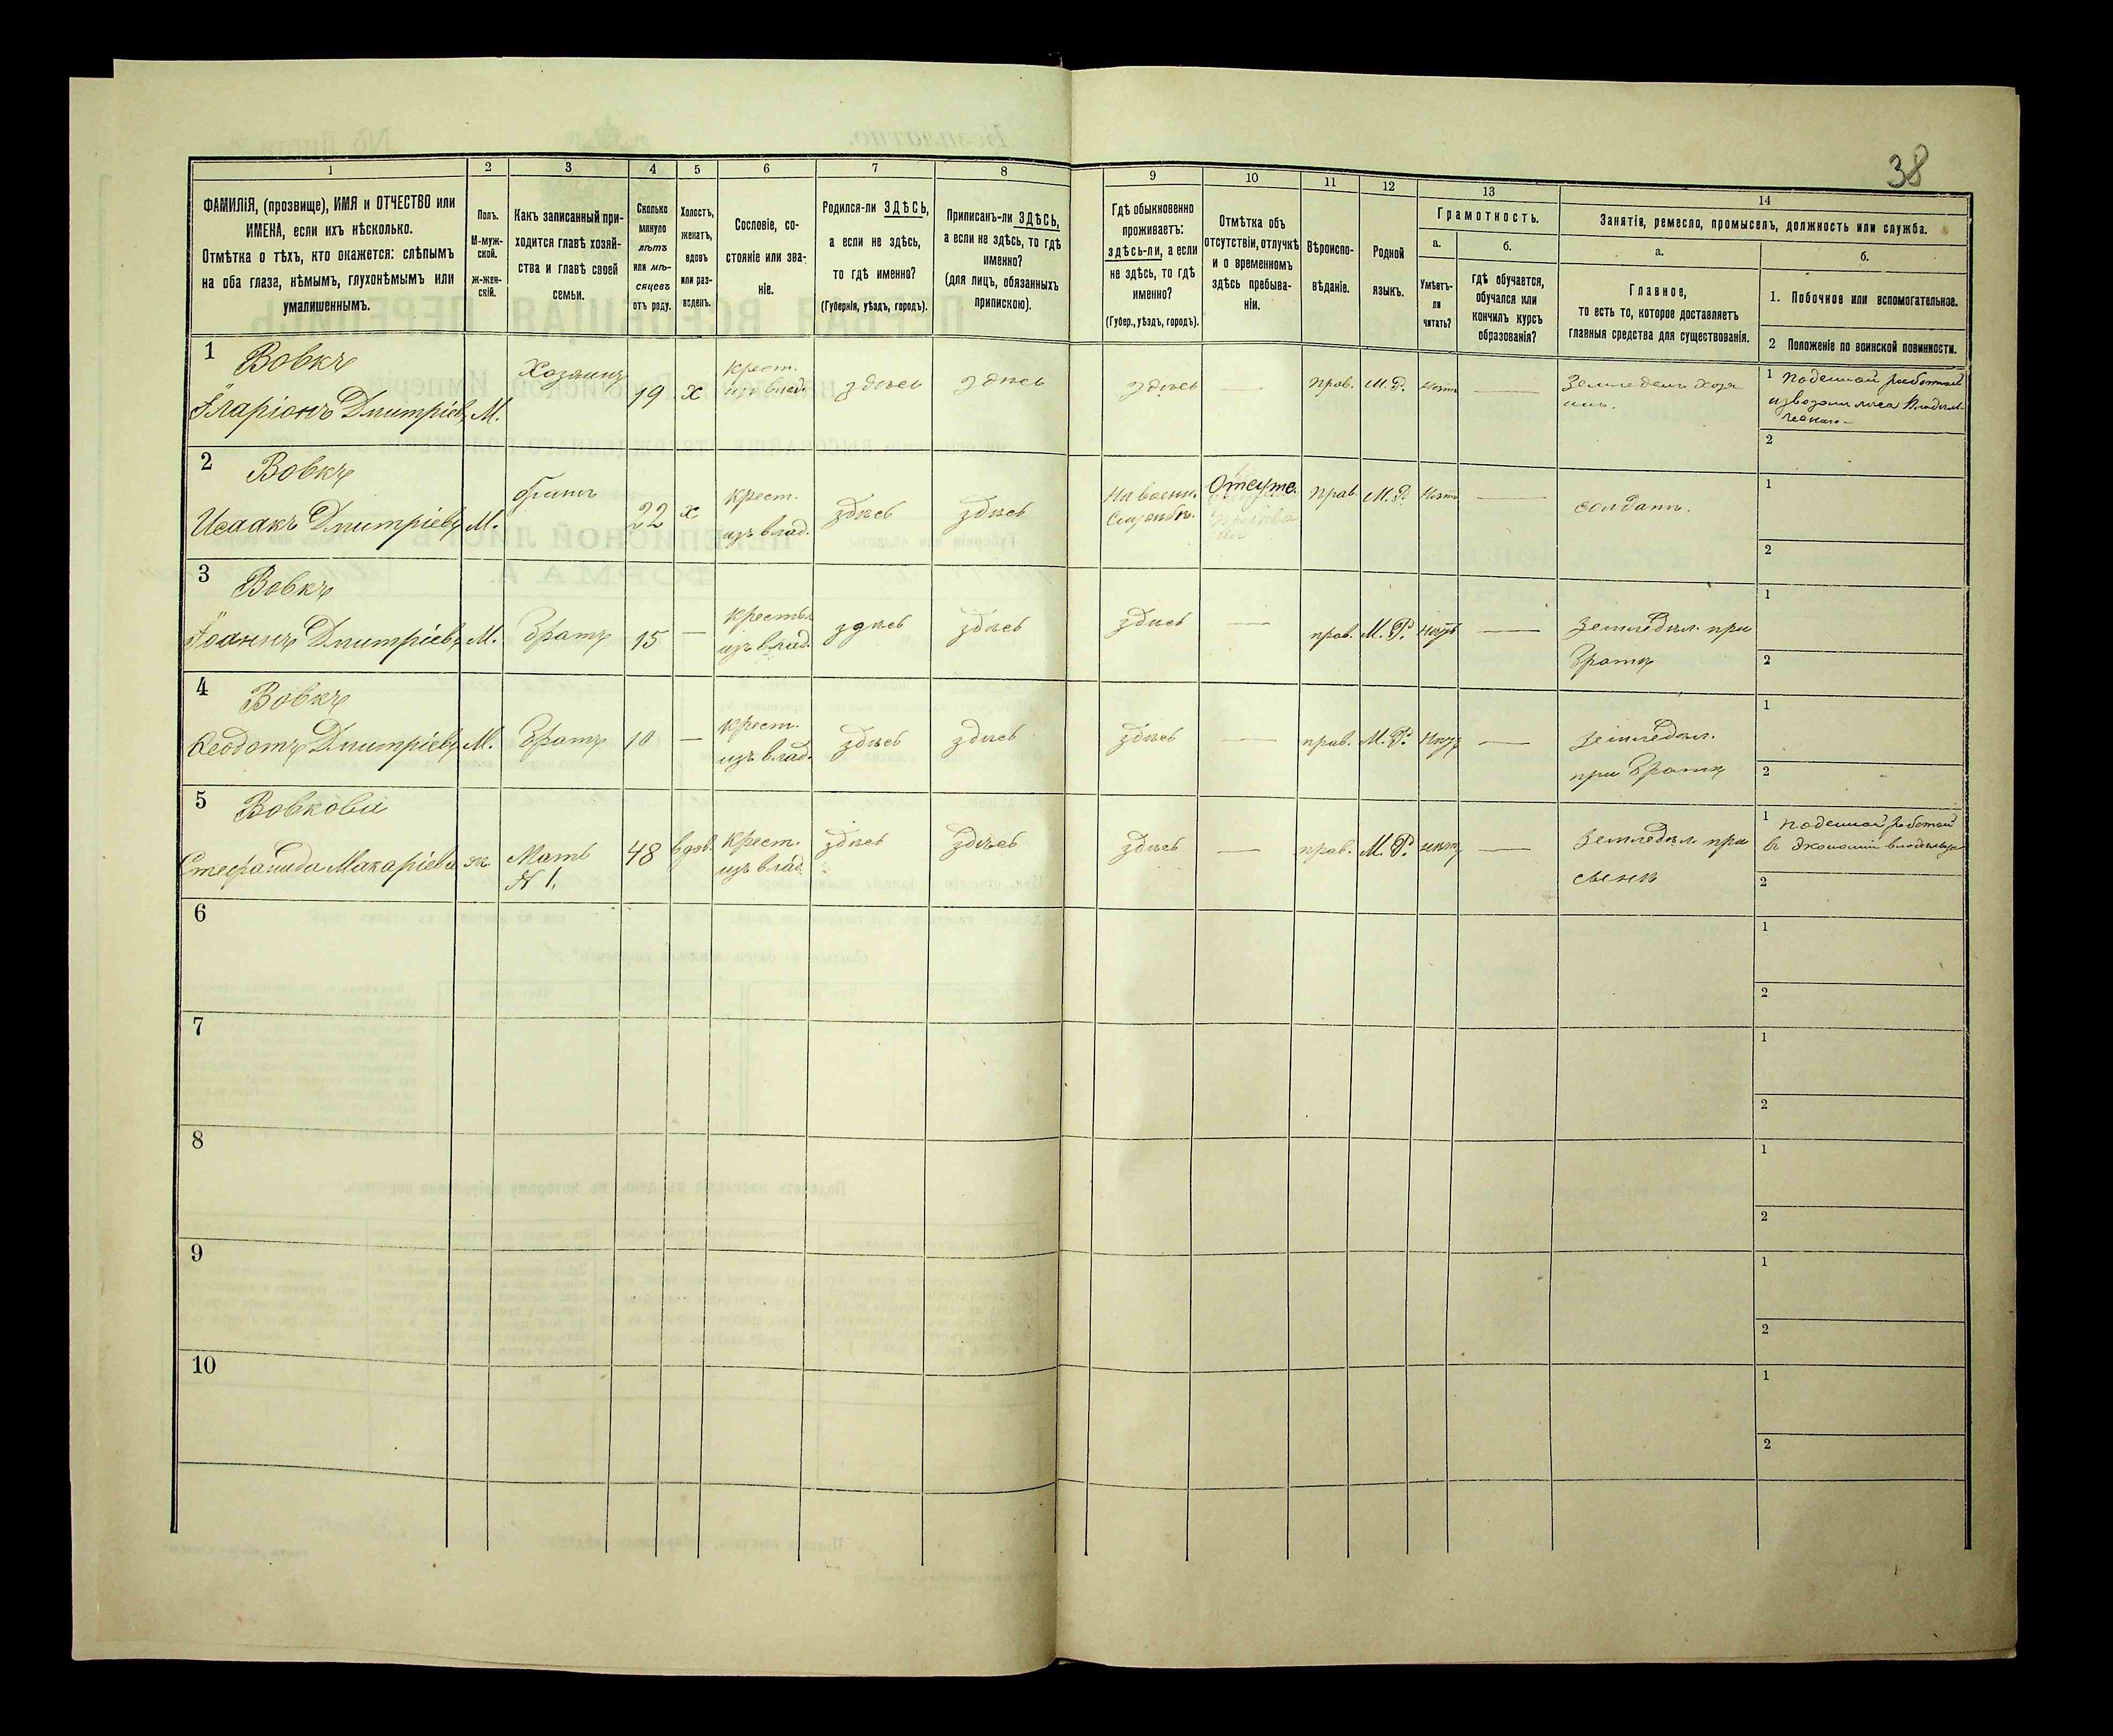 38
1
2
3
4
5
6
7
8
9
10
11
12
13
14
ФАМИЛІЯ, (прозвище), ИМЯ и ОТЧЕСТВО или
ИМЕНА, если ихъ нѣсколько.
Отмѣтка о тѣхъ, кто окажется: слѣпымъ
на оба глаза, нѣмымъ, глухонѣмымъ или
умалишеннымъ.
Полъ.
М-муж-
ской.
Ж-жен-
скій.
Какъ записанный при-
ходится главѣ хозяй-
ства и главѣ своей
семьи.
Сколько
минуло
лѣтъ
или мѣ-
сяцевъ
отъ роду.
Холостъ,
женатъ,
вдовъ
или раз-
веденъ.
Сословіе, со-
стояніе или зва-
ніе.
Родился-ли ЗДѢСЬ,
а если не здѣсь,
то гдѣ именно?
(Губернія, уѣздъ, городъ).
Приписанъ-ли ЗДѢСЬ,
а если не здѣсь, то гдѣ
именно?
(для лицъ, обязанныхъ
припискою).
Гдѣ обыкновенно
проживаетъ:
здѣсь-ли, а если
не здѣсь, то гдѣ
именно?
(Губер., уѣздъ, городъ).
Отмѣтка объ
отсутствіи, отлучкѣ
и о временномъ
здѣсь пребыва-
ніи.
Вѣроиспо-
вѣданіе.
Родной
языкъ.
Грамотность.
а.
Умѣетъ-
ли
читать?
б.
гдѣ обучается,
обучался или
кончилъ курсъ
образованія?
Занятія, ремесло, промыселъ, должность или служба.
а.
Главное,
то есть то, которое доставляетъ
главныя средства для существованія.
б.
1. Побочное или вспомогательное.
2 Положеніе по воинской повинности.
1 Вовкъ
Иларіонъ Дмитріевъ М.
Хозяинъ
19 х
крест.
изъ влад.
здѣсь здѣсь здѣсь — прав. М.Р. нѣтъ —
Земледѣл. хозя
инъ.
1 Поденной работой
2
2 Вовкъ
Исаакъ Дмитріевъ М.
братъ
22 х
крест.
изъ влад.
здѣсь здѣсь
На военн.
Службѣ.
Отсутс.
прав. М.Р. нѣтъ —
солдатъ.
1
2
3 Вовкъ
Іоаннъ Дмитріевъ М.
братъ 15 —
крестья
изъ влад.
здѣсь здѣсь здѣсь — прав. М.Р. нѣтъ —
земледѣл. при
братѣ
1
2
4 Вовкъ
Ѳеодотъ Дмитріевъ М.
братъ 10 —
крест.
изъ влад.
здѣсь здѣсь здѣсь — прав. М.Р. нѣтъ —
земледѣл.
при братѣ
1
2
5 Вовкова
Стефанида Макаріева ж.
Мать
№ 1.
48 вдов.
крест.
изъ влад.
здѣсь здѣсь здѣсь — прав. М.Р. нѣтъ —
земледѣл при
сынѣ
1 поденной работой
въ экономіи
2
6
1
2
7
1
2
8
1
2
9
1
2
10
1
2